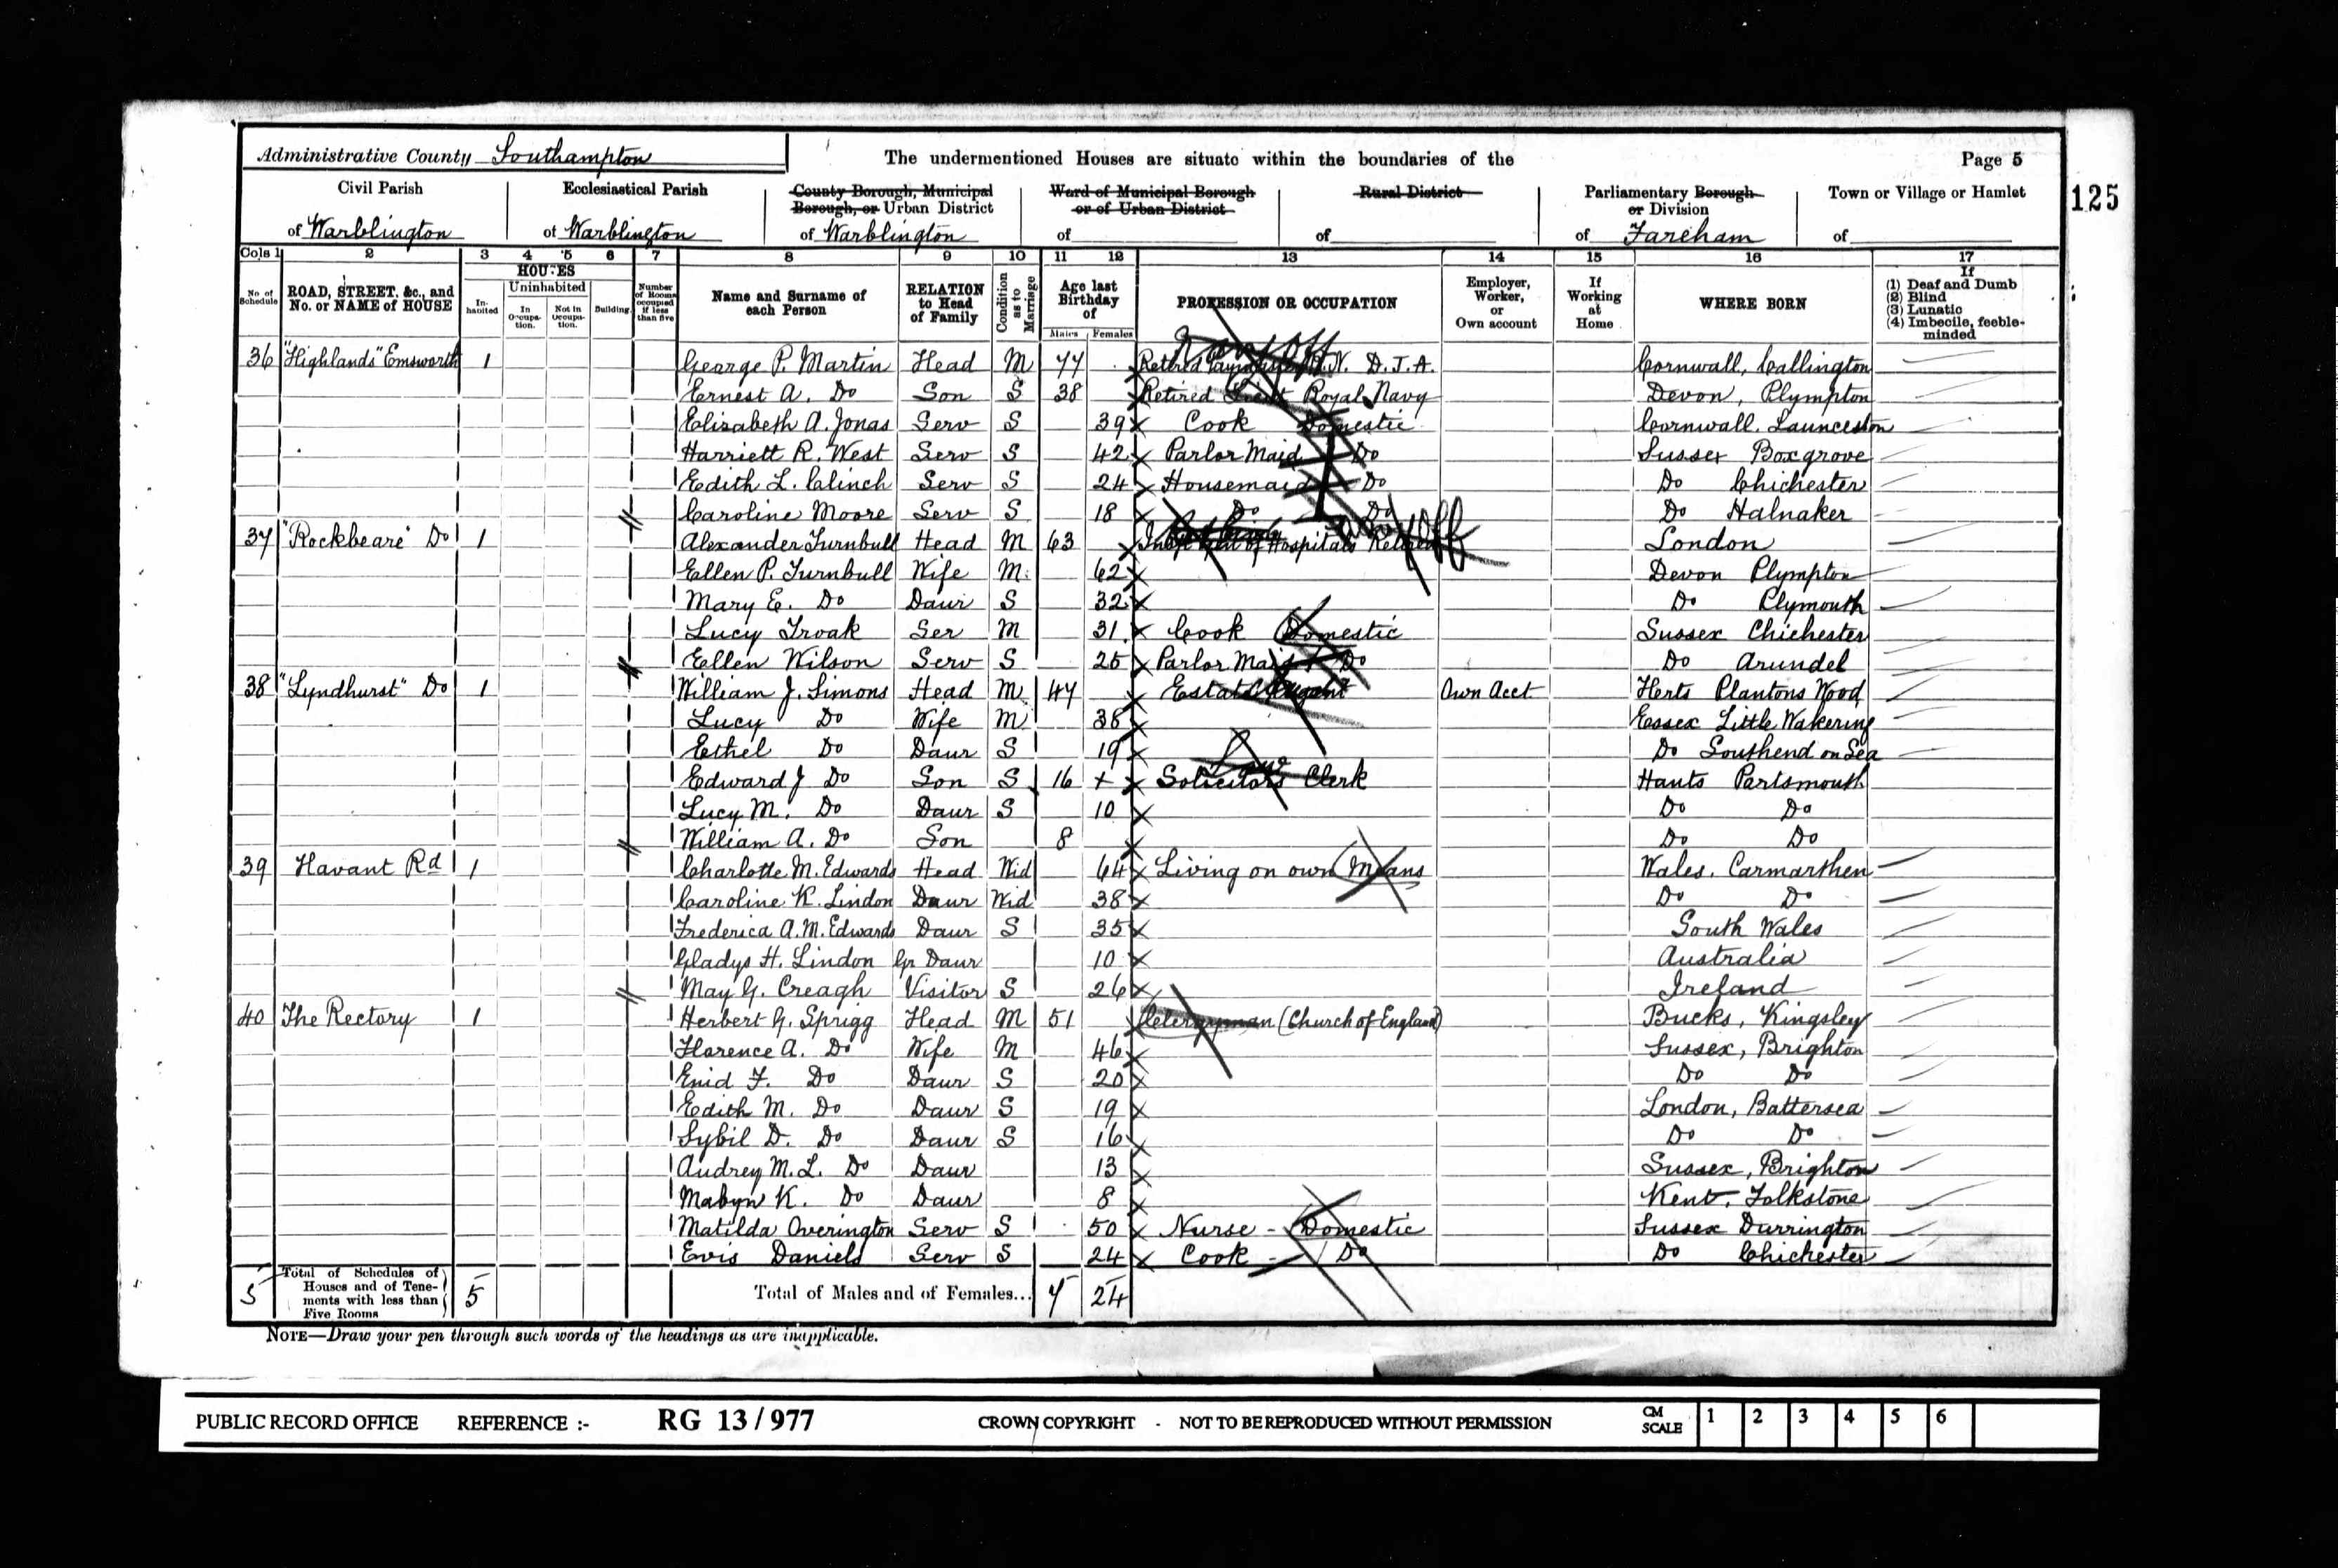 Administrative County Southampton
The undermentioned Houses are situate within the boundaries of the
Page 5
125
Civil Parish of Warblington
Ecclesiastical Parish of Warblington
County Borough, Municipal Borough, or Urban District of Warblington
Ward of Municipal Borough or of Urban District of
Rural District of
Parliamentary Borough or Division of Fareham
Town or Village or Hamlet of
Cols 1 2 3 4 5 6 7 8 9 10 11 12 13 14 15 16 17
No. of Schedule
ROAD, STREET, &c., and No. or NAME of HOUSE
HOUSES
In-habited
Uninhabited
In Occupa-tion.
Not in Occupa-tion.
Building
Number of Rooms occupied if less than five
Name and Surname of each Person
RELATION to Head of Family
Condition as to Marriage
Age last Birthday of
Males Females
PROFESSION OR OCCUPATION
Employer, Worker, or Own account
If Working at Home
WHERE BORN
If
(1) Deaf and Dumb
(2) Blind
(3) Lunatic
(4) Imbecile, feeble-minded
36 "Highlands" Emsworth 1 George P. Martin Head M 77 Retired R.N. D.J.A. Cornwall, Callington
Ernest A. Do Son S 38 Retired Lieut Royal Navy Devon, Plympton
Elizabeth A. Jonas Serv S 39 Cook Domestic Cornwall. Launceston
Harriett R. West Serv S 42 Parlor Maid Do Sussex Boxgrove
Edith L. Clinch Serv S 24 Housemaid Do Do Chichester
Caroline Moore Serv S 18 Do Do Do Halnaker
37 "Rockbeare" Do 1 Alexander Turnbull Head M 63 of Hospitals Retired London
Ellen P. Turnbull Wife M 62 Devon Plympton
Mary E. Do Daur S 32 Do Plymouth
Lucy Troak Ser M 31 Cook Domestic Sussex Chichester
Ellen Wilson Serv S 25 Parlor Maid Do Do Arundel
38 "Lyndhurst" Do 1 William J. Simons Head M 47 Estate Agent Own Acct Herts Plantons Wood
Lucy Do Wife M 38 Essex Little Wakering
Ethel Do Daur S 19 Do Southend on Sea
Law
Edward J Do Son S 16 + Solicitors Clerk Hants Portsmouth
Lucy M. Do Daur S 10 Do Do
William A. Do Son 8 Do Do
39 Havant Rd 1 Charlotte M. Edwards Head Wid 64 Living on own Means Wales. Carmarthen
Caroline K. Lindon Daur Wid 38 Do Do
Frederica A. M. Edwards Daur S 35 South Wales
Gladys H. Lindon Gr Daur 10 Australia
May G. Creagh Visitor S 26 Ireland
40 The Rectory 1 Herbert G. Sprigg Head M 51 Clergyman (Church of England) Bucks, Kingsley
Florence A. Do Wife M 46 Sussex, Brighton
Enid F. Do Daur S 20 Do Do
Edith M. Do Daur S 19 London, Battersea
Sybil D. Do Daur S 16 Do Do
Audrey M. L. Do Daur 13 Sussex, Brighton
Mabyn K. Do Daur 8 Kent, Folkstone
Matilda Overington Serv S 50 Nurse - Domestic Sussex Durrington
Evis Daniels Serv S 24 Cook - Do Do Chichester
5 Total of Schedules of Houses and of Tene-ments with less than Five Rooms 5 Total of Males and of Females... 7 24
NOTE—Draw your pen through such words of the headings as are inapplicable.
PUBLIC RECORD OFFICE REFERENCE :- RG 13/977 CROWN COPYRIGHT - NOT TO BE REPRODUCED WITHOUT PERMISSION CM SCALE 1 2 3 4 5 6